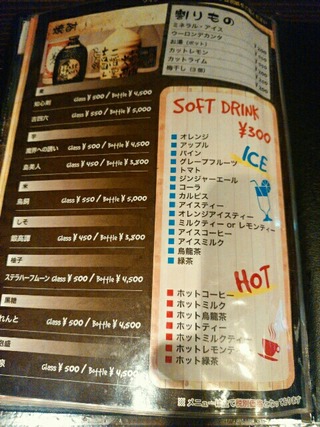 焼酎
麦
知心剣 Glass ¥ 500 / Bottle ¥ 4,500
吉四六 Glass ¥ 550 / Bottle ¥ 5,000
芋
魔界への誘い Glass ¥ 500 / Bottle ¥ 4,500
島美人 Glass ¥ 450 / Bottle ¥ 3,800
米
鳥飼 Glass ¥ 550 / Bottle ¥ 5,000
しそ
鍛高譚 Glass ¥ 450 / Bottle ¥ 3,800
柚子
ステラハーフムーン Glass ¥ 500 / Bottle ¥ 4,500
黒糖
れんと Glass ¥ 500 / Bottle ¥ 4,500
泡盛
Glass ¥ 500 / Bottle ¥ 4,500
割りもの
ミネラル・アイス
ウーロンデカンタ
お湯(ポット)
カットレモン
カットライム
梅干し
SOFT DRINK
¥300
ICE
オレンジ
アップル
パイン
グレープフルーツ
トマト
ジンジャーエール
コーラ
カルピス
アイスティー
オレンジアイスティー
ミルクティー or レモンティー
アイスコーヒー
アイスミルク
烏龍茶
緑茶
HOT
ホットコーヒー
ホットミルク
ホット烏龍茶
ホットティー
ホットミルクティー
ホットレモンティー
ホット緑茶
※メニューは全て税別価格となっております